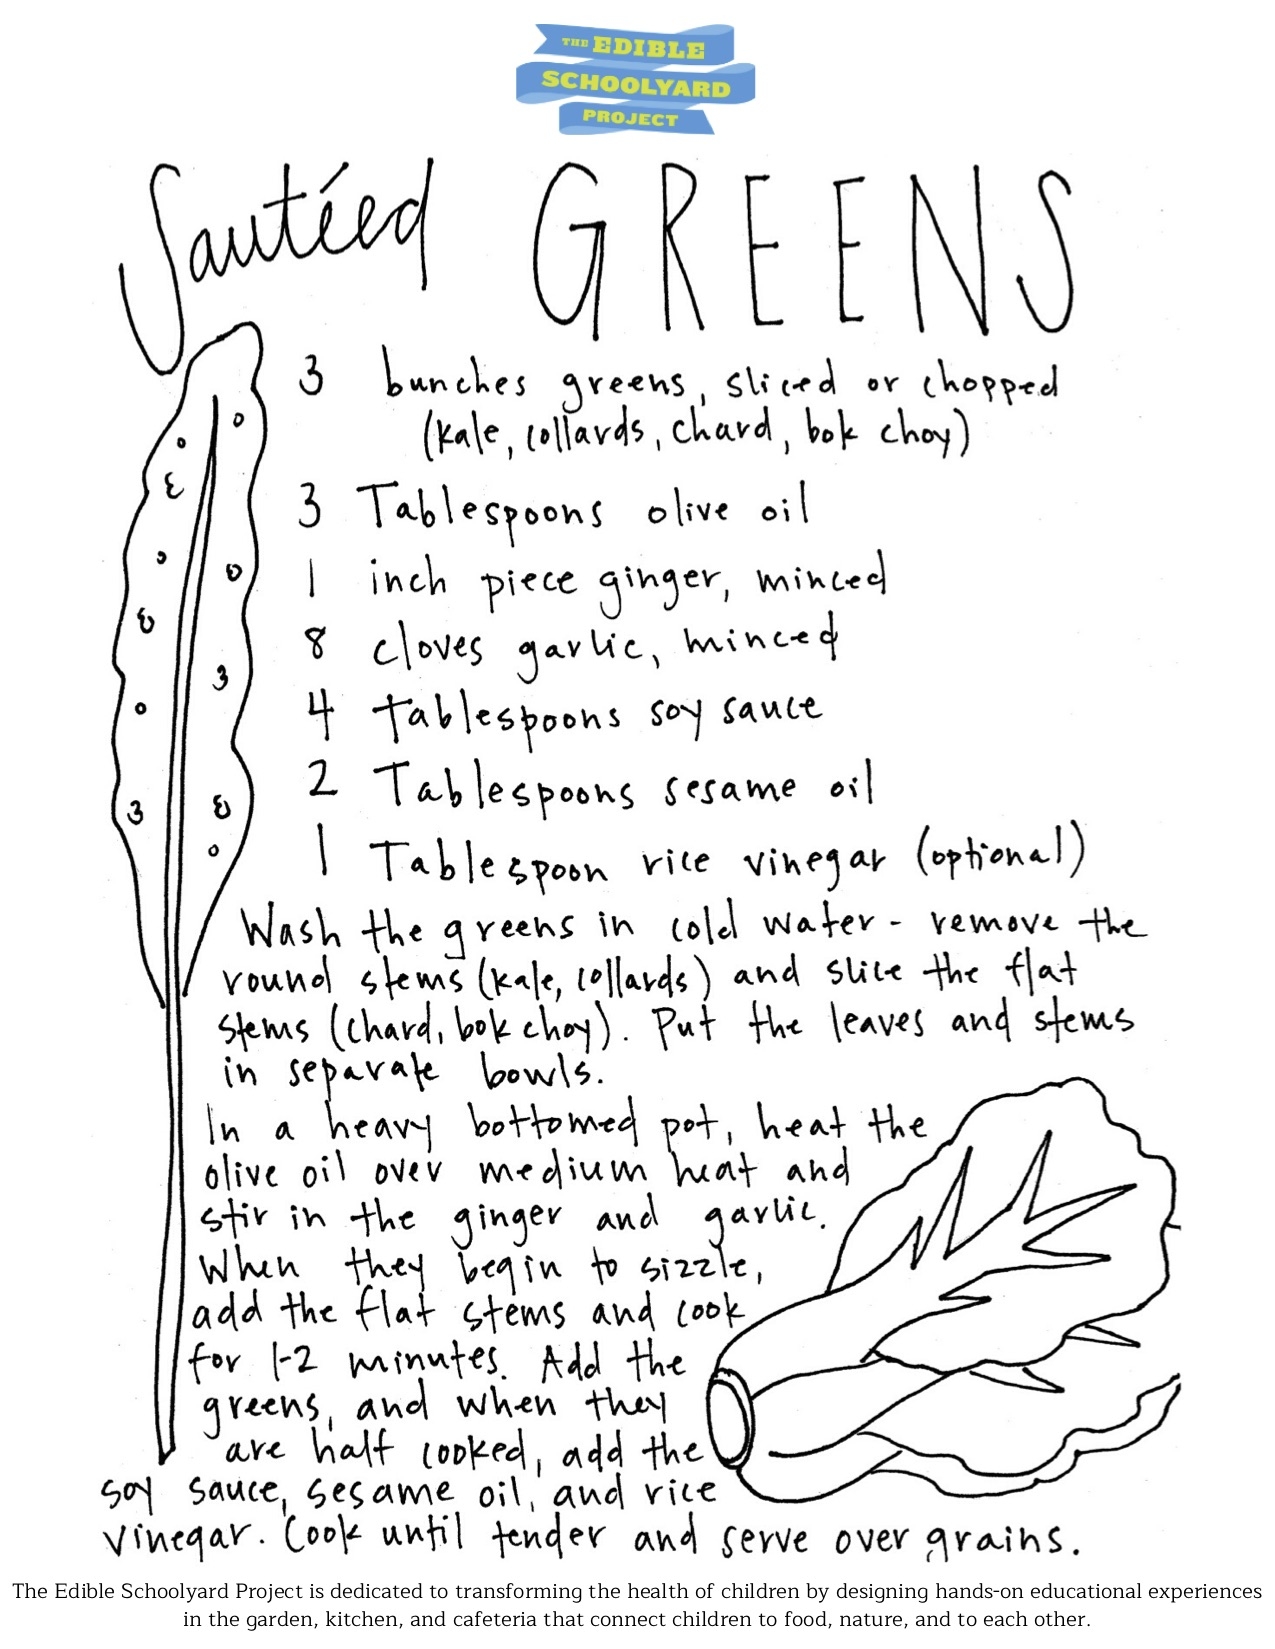 THE EDIBLE
SCHOOLYARD
PROJECT
Sautéed GREENS
3 bunches greens, sliced or chopped
(kale, collards, chard, bok choy)
3 Tablespoons olive oil
1 inch piece ginger, minced
8 cloves garlic, minced
4 tablespoons soy sauce
2 Tablespoons sesame oil
1 Tablespoon rice vinegar (optional)
Wash the greens in cold water - remove the
round stems (kale, collards) and slice the flat
stems (chard, bok choy). Put the leaves and stems
in separate bowls.
In a heavy bottomed pot, heat the
olive oil over medium heat and
stir in the ginger and garlic.
When they begin to sizzle,
add the flat stems and cook
for 1-2 minutes. Add the
greens, and when they
are half cooked, add the
soy sauce, sesame oil, and rice
vinegar. Cook until tender and serve over grains.
The Edible Schoolyard Project is dedicated to transforming the health of children by designing hands-on educational experiences
in the garden, kitchen, and cafeteria that connect children to food, nature, and to each other.